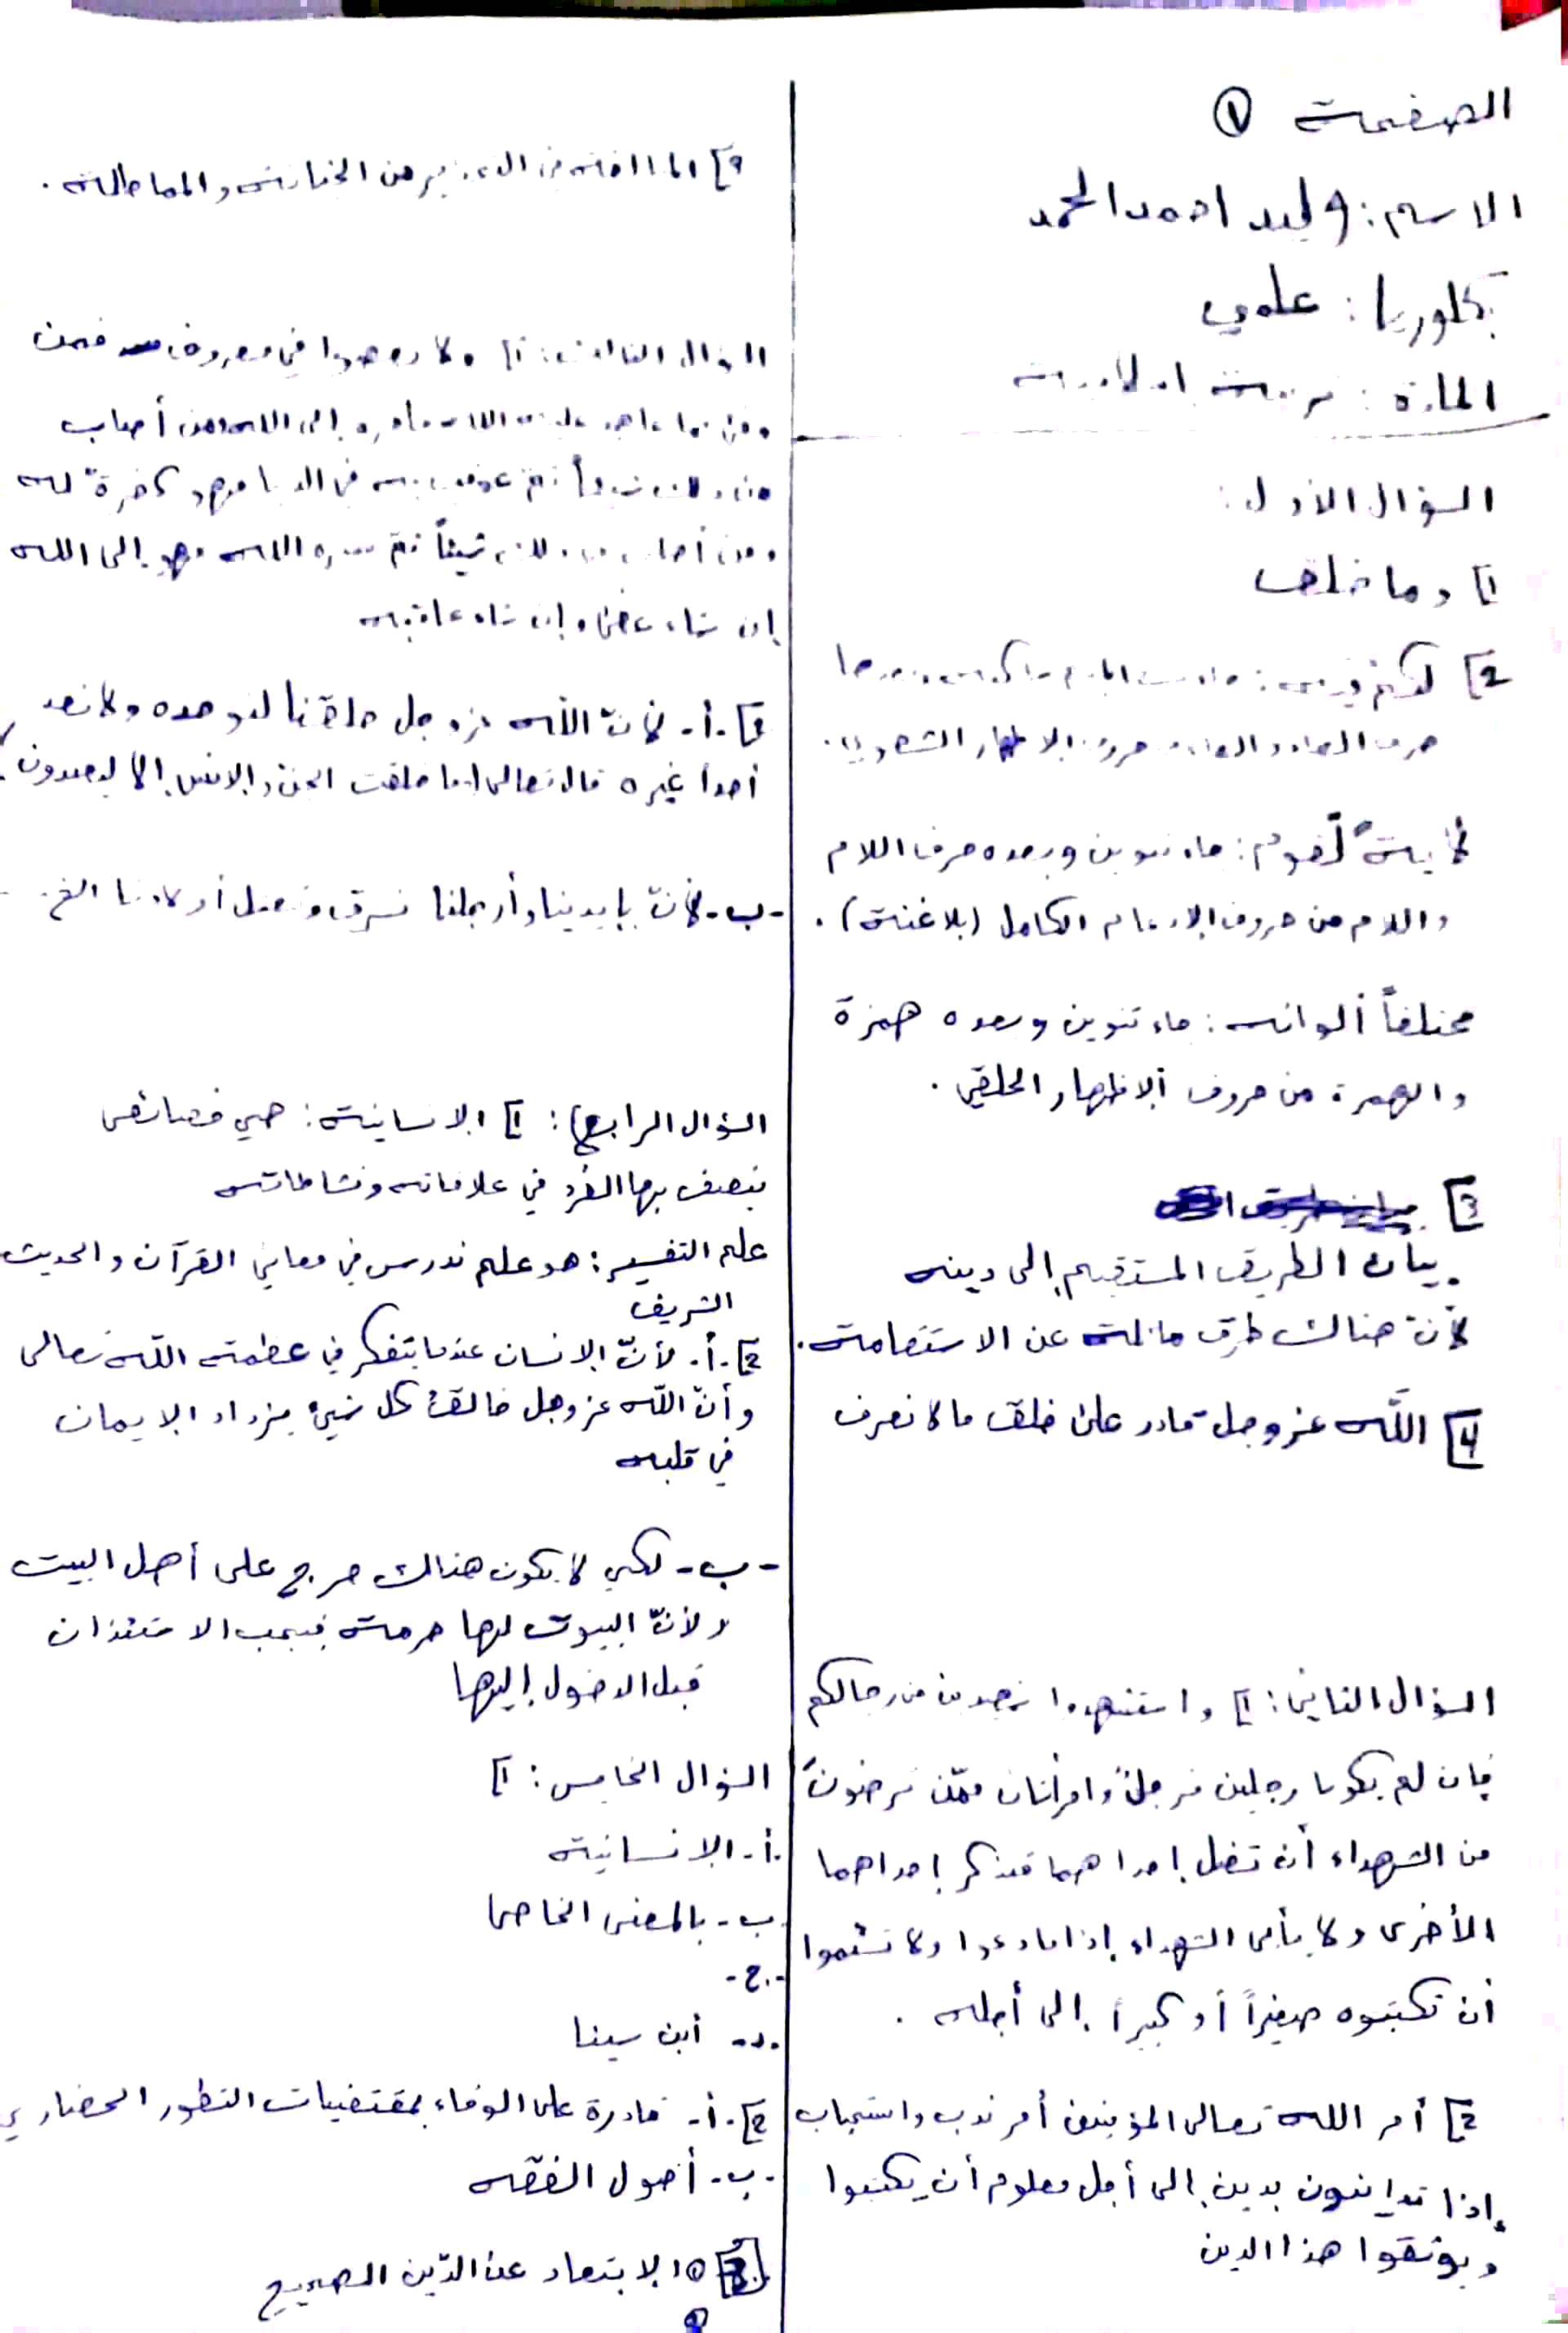 الصفحة ①
الاسم: وليد احمد المحمد
بكلوريا: علمي
المادة: تربية اسلامية
السؤال الأول:
1] وما خلف
2]
حرف الإظهار الشفوي.
لآيةً لّقوم: جاء تنوين وبعده حرف اللام
واللام من حروف الإدغام الكامل (بلا غنة).
مختلفاً ألوانه: جاء تنوين وبعده همزة
والهمزة من حروف الإظهار الحلقي.
3]
بيان الطريق المستقيم إلى دينه
لأن هناك طرق مائلة عن الاستقامة.
4] الله عز وجل قادر على خلق ما لا نعرف
السؤال الثاني: 1] واستشهدوا شهيدين من رجالكم
فإن لم يكونا رجلين فرجلٌ وامرأتان ممّن ترضون
من الشهداء أن تضل إحداهما فتذكر إحداهما
الأخرى ولا يأبى الشهداء إذا ما دعوا ولا تسئموا
أن تكتبوه صغيراً أو كبيراً إلى أجله.
2] أمر الله تعالى المؤمنين أمر ندب واستحباب
إذا تداينون بدين إلى أجل معلوم أن يكتبوا
ويوثقوا هذا الدين
3] من الخيانة والمماطلة.
السؤال الثالث: 1] ولا تعصوا في معروف فمن
إلى الله ومن أصاب
من ذلك شيئاً ثم عوقب به في الدنيا فهو كفرةٌ له
ومن أصاب من ذلك شيئاً ثم ستره الله فهو إلى الله
إن شاء عفى وإن شاء عاقبه
2] .أ- لأنّ الله عزوجل خلقنا لنوحده ولا نعبد
أحداً غيره قال تعالى وما خلقت الجن والإنس إلا ليعبدون
-ب- لأنّ بإيدينا وأرجلنا نسرق ونقتل أولادنا الخ.
السؤال الرابع: 1] الإنسانية: هي خصائص
يتصف بها الفرد في علاقاته ونشاطاته
علم التفسير: هو علم ندرس في معاني القرآن والحديث
الشريف
2] .أ. لأنّ الإنسان عندما يتفكر في عظمة الله تعالى
وأنّ الله عز وجل خالق كل شيئ يزداد الإيمان
في قلبه
-ب- لكي لا يكون هناك حرج على أهل البيت
ولأنّ البيوت لها حرمة فيجب الاستئذان
قبل الدخول إليها
السؤال الخامس: 1]
أ- الإنسانية
ب- بالمعنى الخاص
-ج-
د- أبن سينا
2] .أ- قادرة على الوفاء بمقتضيات التطور الحضاري
-ب- أصول الفقه
3] ① الابتعاد عن الدّين الصحيح